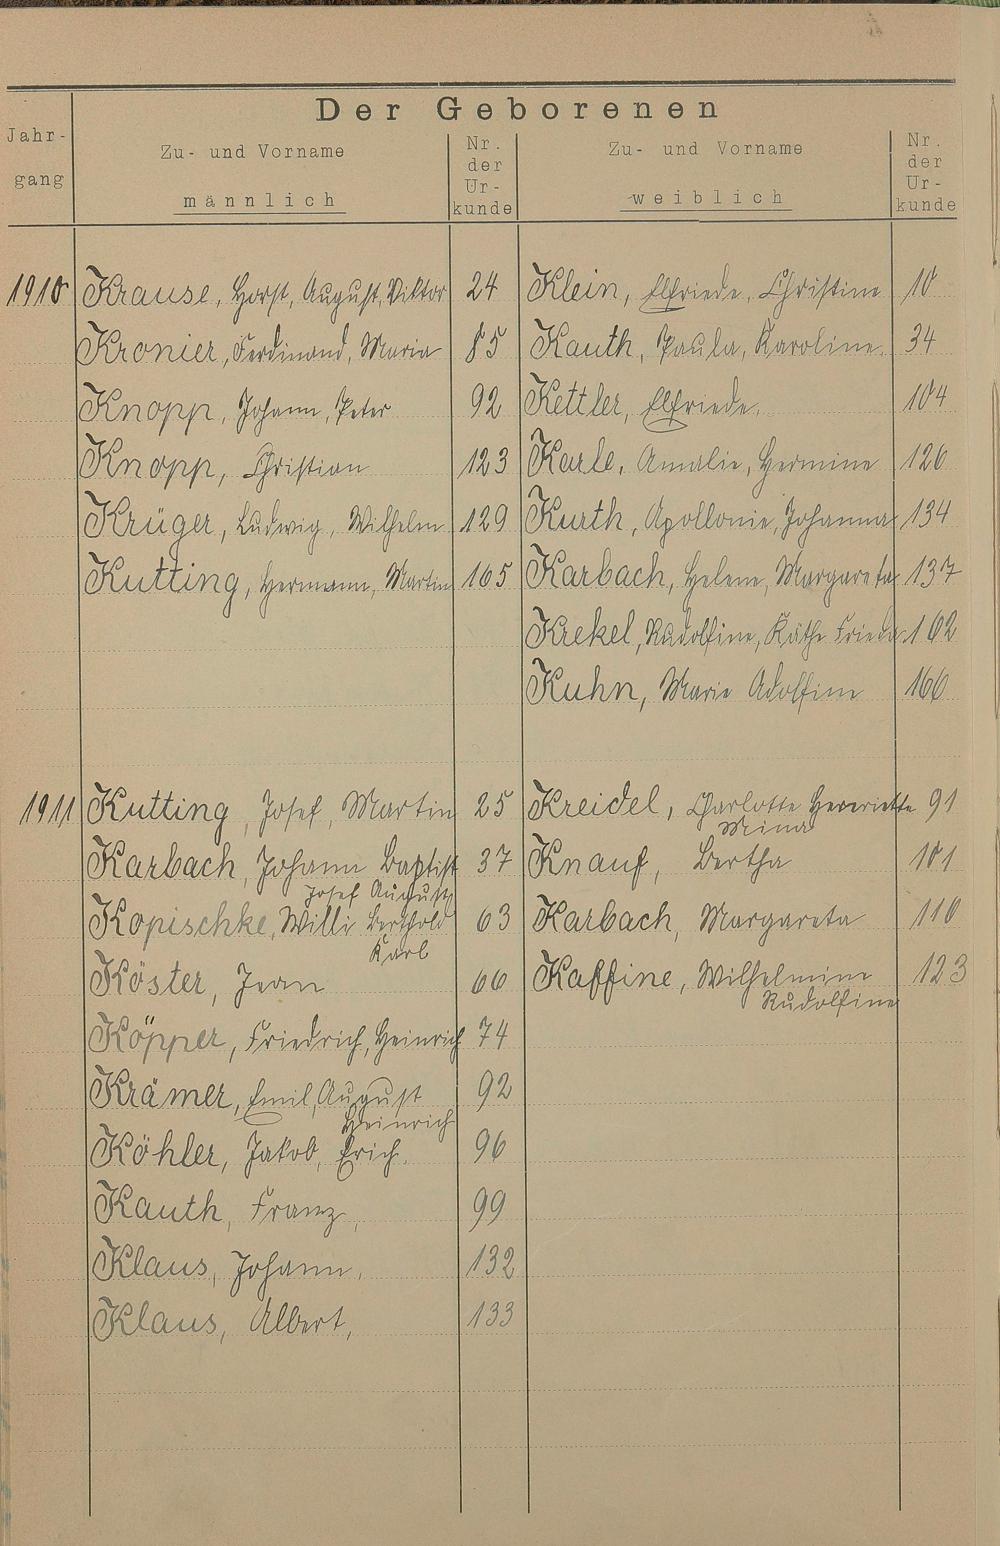 Der Geborenen
Jahr-
gang
Zu- und Vorname
männlich
Nr.
der
Ur-
kunde
Zu- und Vorname
weiblich
Nr.
der
Ur-
kunde
1910 Krause, Horst, August, Viktor 24 Klein, Elfriede, Christine 10
Kronier, Ferdinand, Maria 85 Kauth, Paula, Karoline. 34
Knopp, Johann, Peter 92 Kettler, Elfriede. 104
Knopp, Christian 123 Karle, Amalie, Hermine 126
Krüger, Ludwig, Wilhelm 129 Kurth, Apollonie, Johanna 134
Kutting, Hermann, Martin 165 Karbach, Helene, Margareta 137
Krekel, Rudolfine, Käthe Frieda 162
Kuhn, Marie Adolfine 166
1911 Kutting, Josef, Martin 25 Kreidel, Charlotte Henriette 91
Mina
Karbach, Johann Baptist 37 Knauf, Bertha 101
Josef August
Kopischke, Willi Berthold 63 Karbach, Margareta 110
Karl
Köster, Jean 66 Kaffine, Wilhelmine 123
Rudolfine
Köpper, Friedrich, Heinrich 74
Krämer, Emil, August 92
Heinrich
Köhler, Jakob, Erich. 96
Kauth, Franz, 99
Klaus, Johann, 132
Klaus, Albert, 133